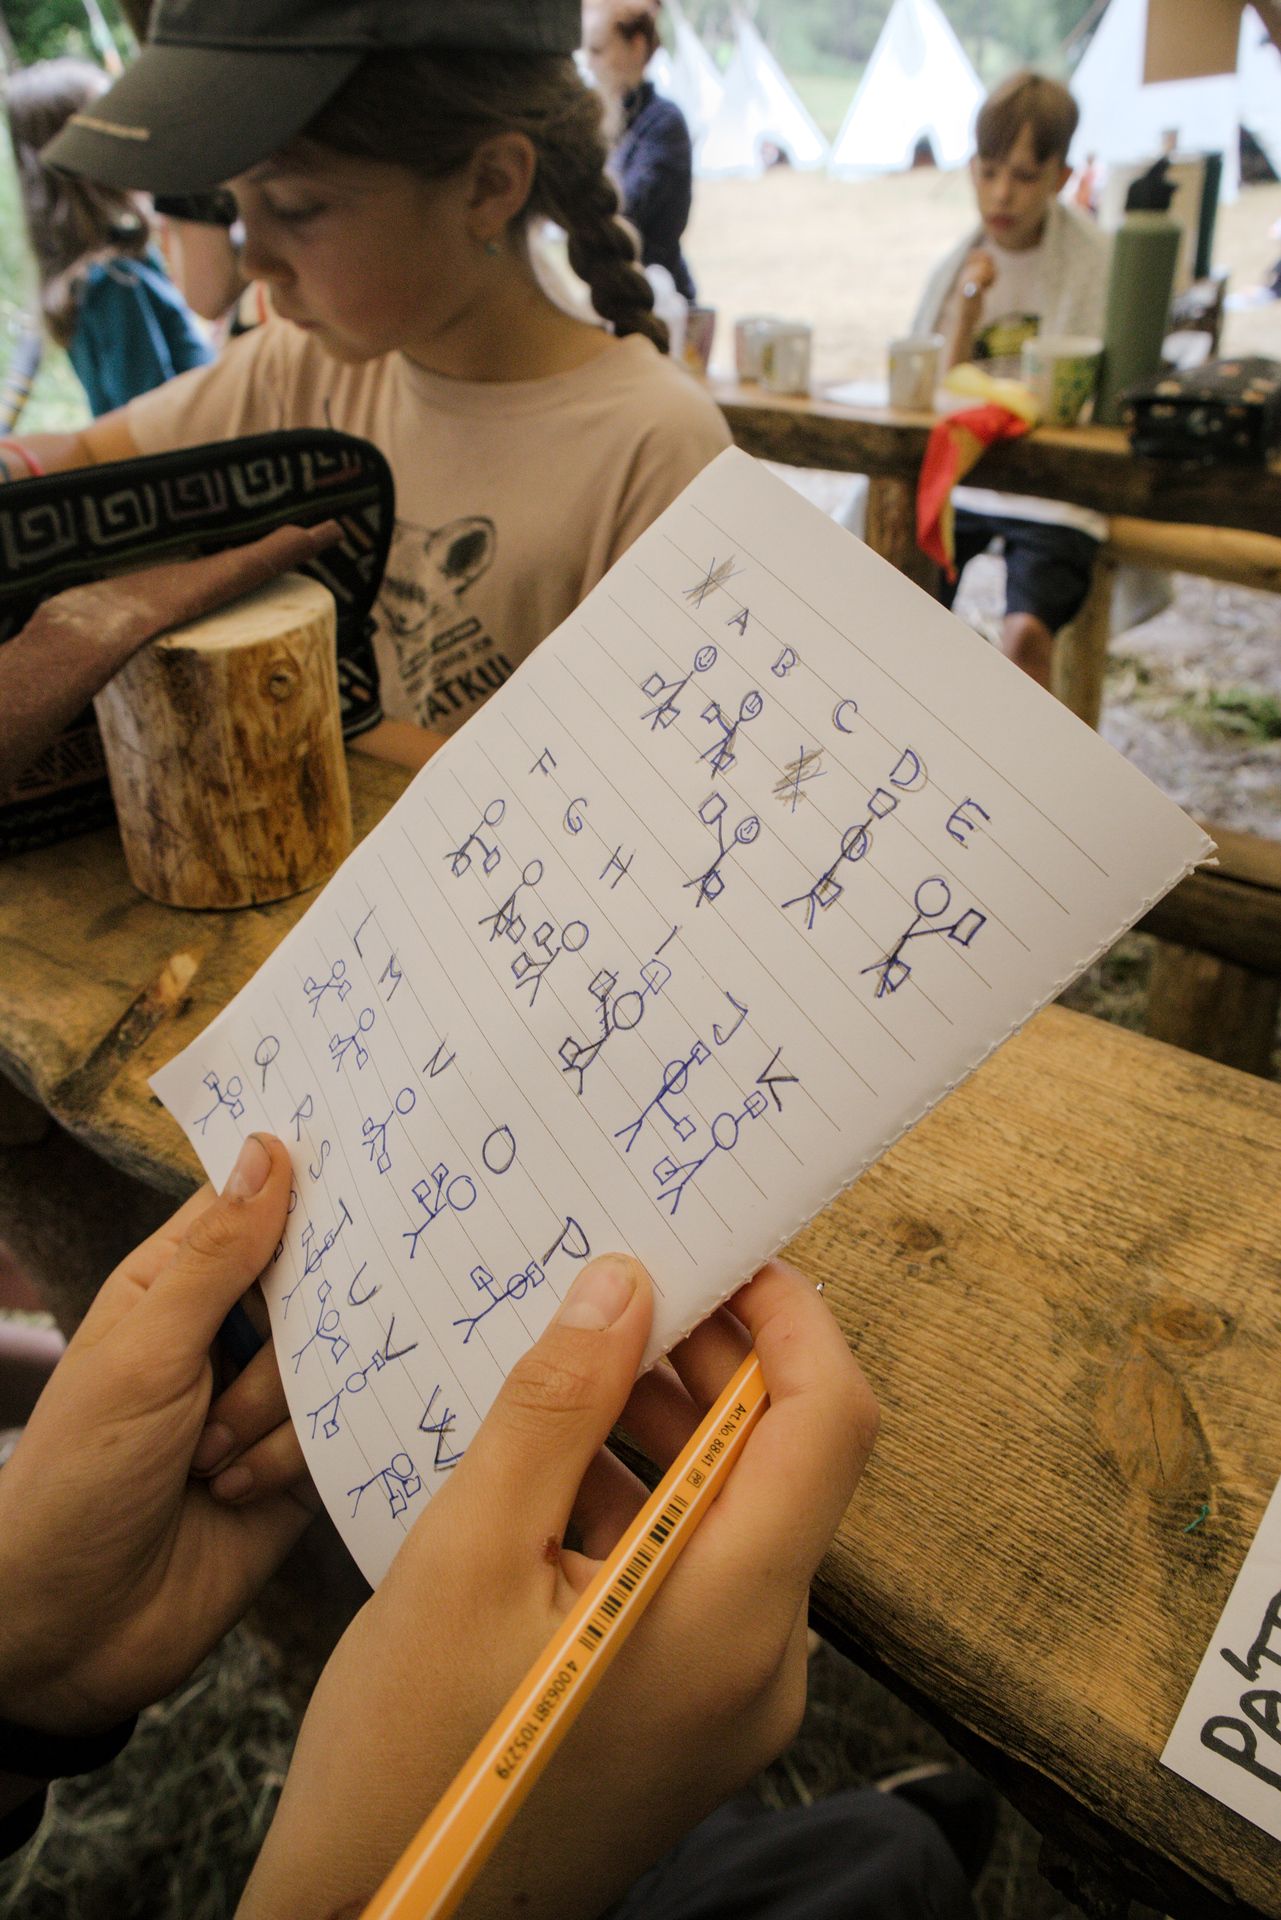 A B C D E
F G H I J K
L M N O P
Q R S T U V W
Art. No. 88/41 PP
4 006381 105279
ATKUL
PAT